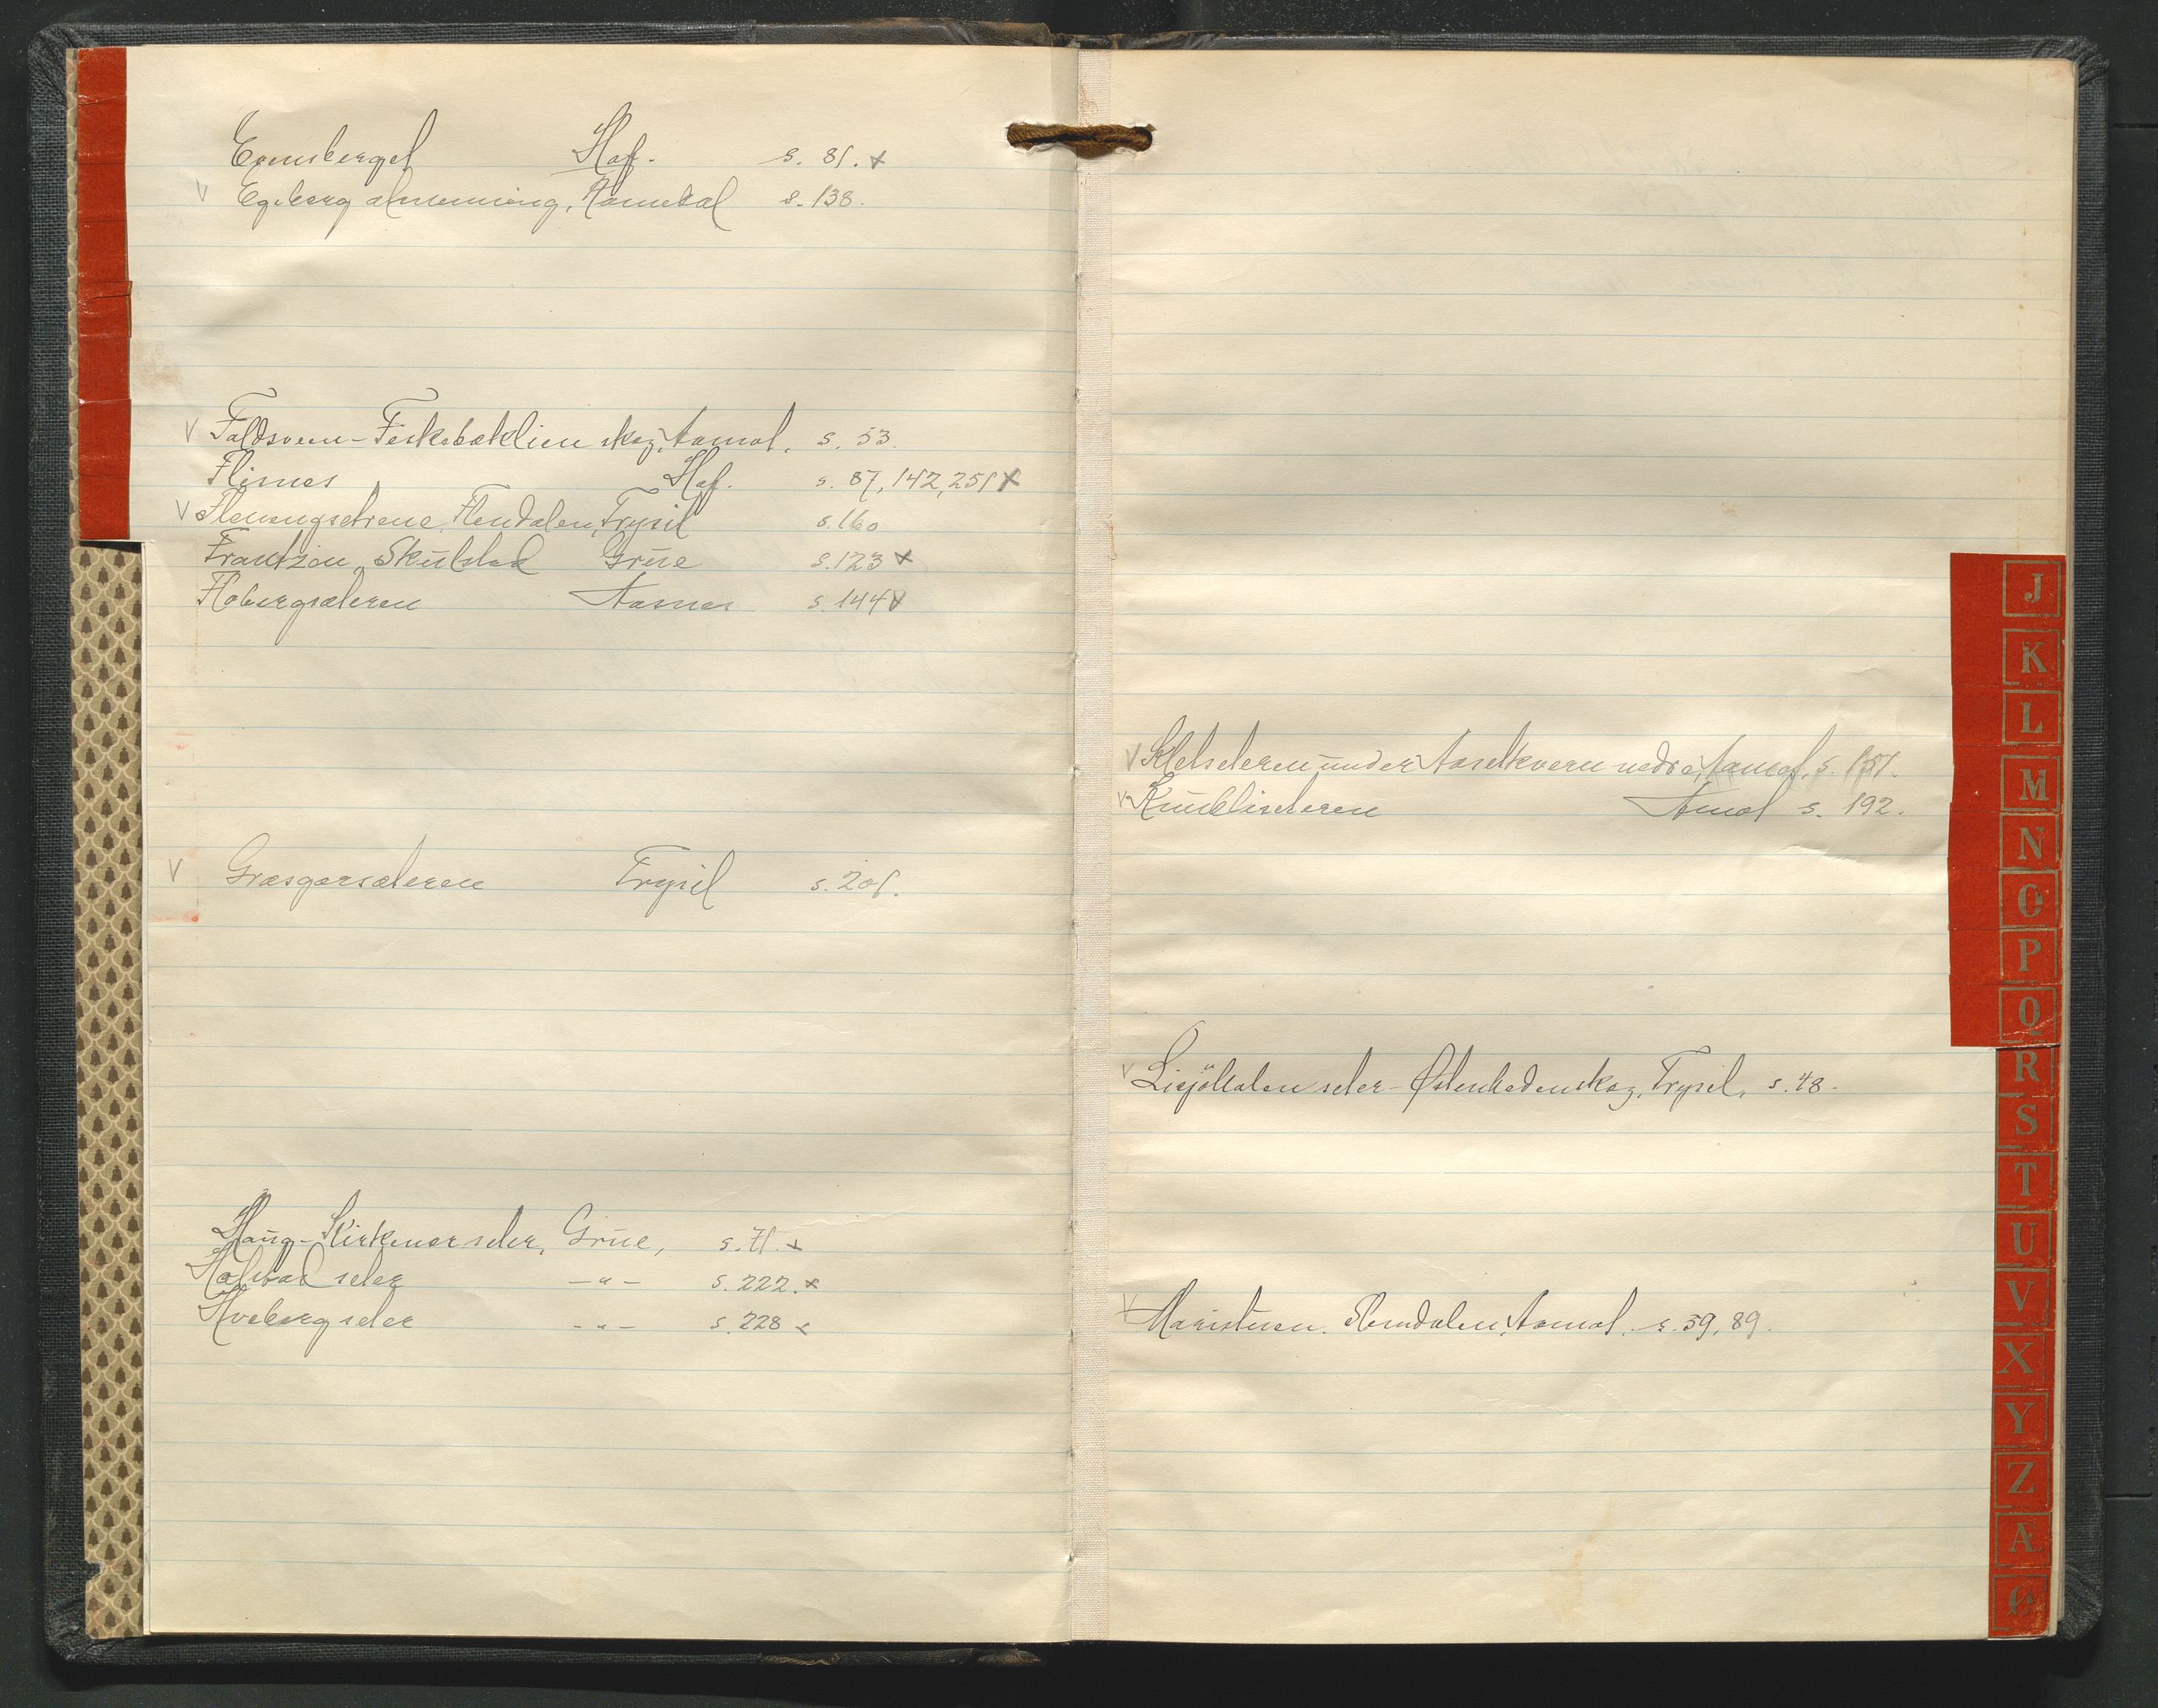 Evensberget Hof. s. 81. x
V Egeberg almenning, Romedal s. 138.
V Faldsveen - Fiskebæklien skog, Aamot. s. 53.
Flisnes Hof. s. 87, 142, 251 x
V Flenengsetrene, Flendalen, Trysil s. 160
Frantzen, Skulstad Grue s. 123 x
Flobergsæteren Aasnes s. 144 x
V Græsgarsæteren Trysil s. 201.
Haug - Kirkenær seter, Grue, s. 71. x
Holstad seter - " - s. 222. x
Hveberg seter - " - s. 228 x
J
K
L
M
N
O
P
Q
R
S
T
U
V
X
Y
Z
Æ
Ø
V Kletseteren under Aasetkvern nedre, Aamot. s. 151.
V Knubliseteren Amot s. 192.
V Lisjöllalen seter - Østenhedenskog, Trysil, s. 48.
V Maristuen. Rendalen, Aamot. s. 59, 89.